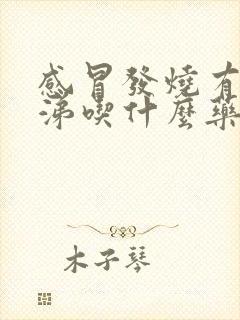 感冒發燒有
涕喫什麼藥
木子琴